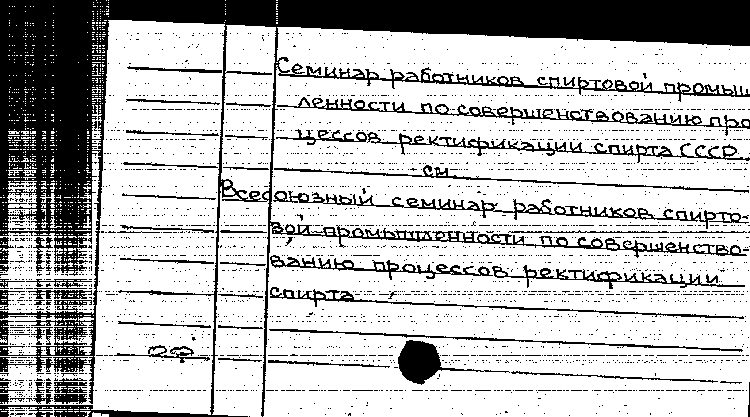 Семинар работников спиртовой промыш
ленности по совершенствованию про
цессов ректификации спирта СССР.
см.
Всесоюзный семинар работников спирто-
вой промышленности по совершенство-
ванию процессов ректификации
спирта